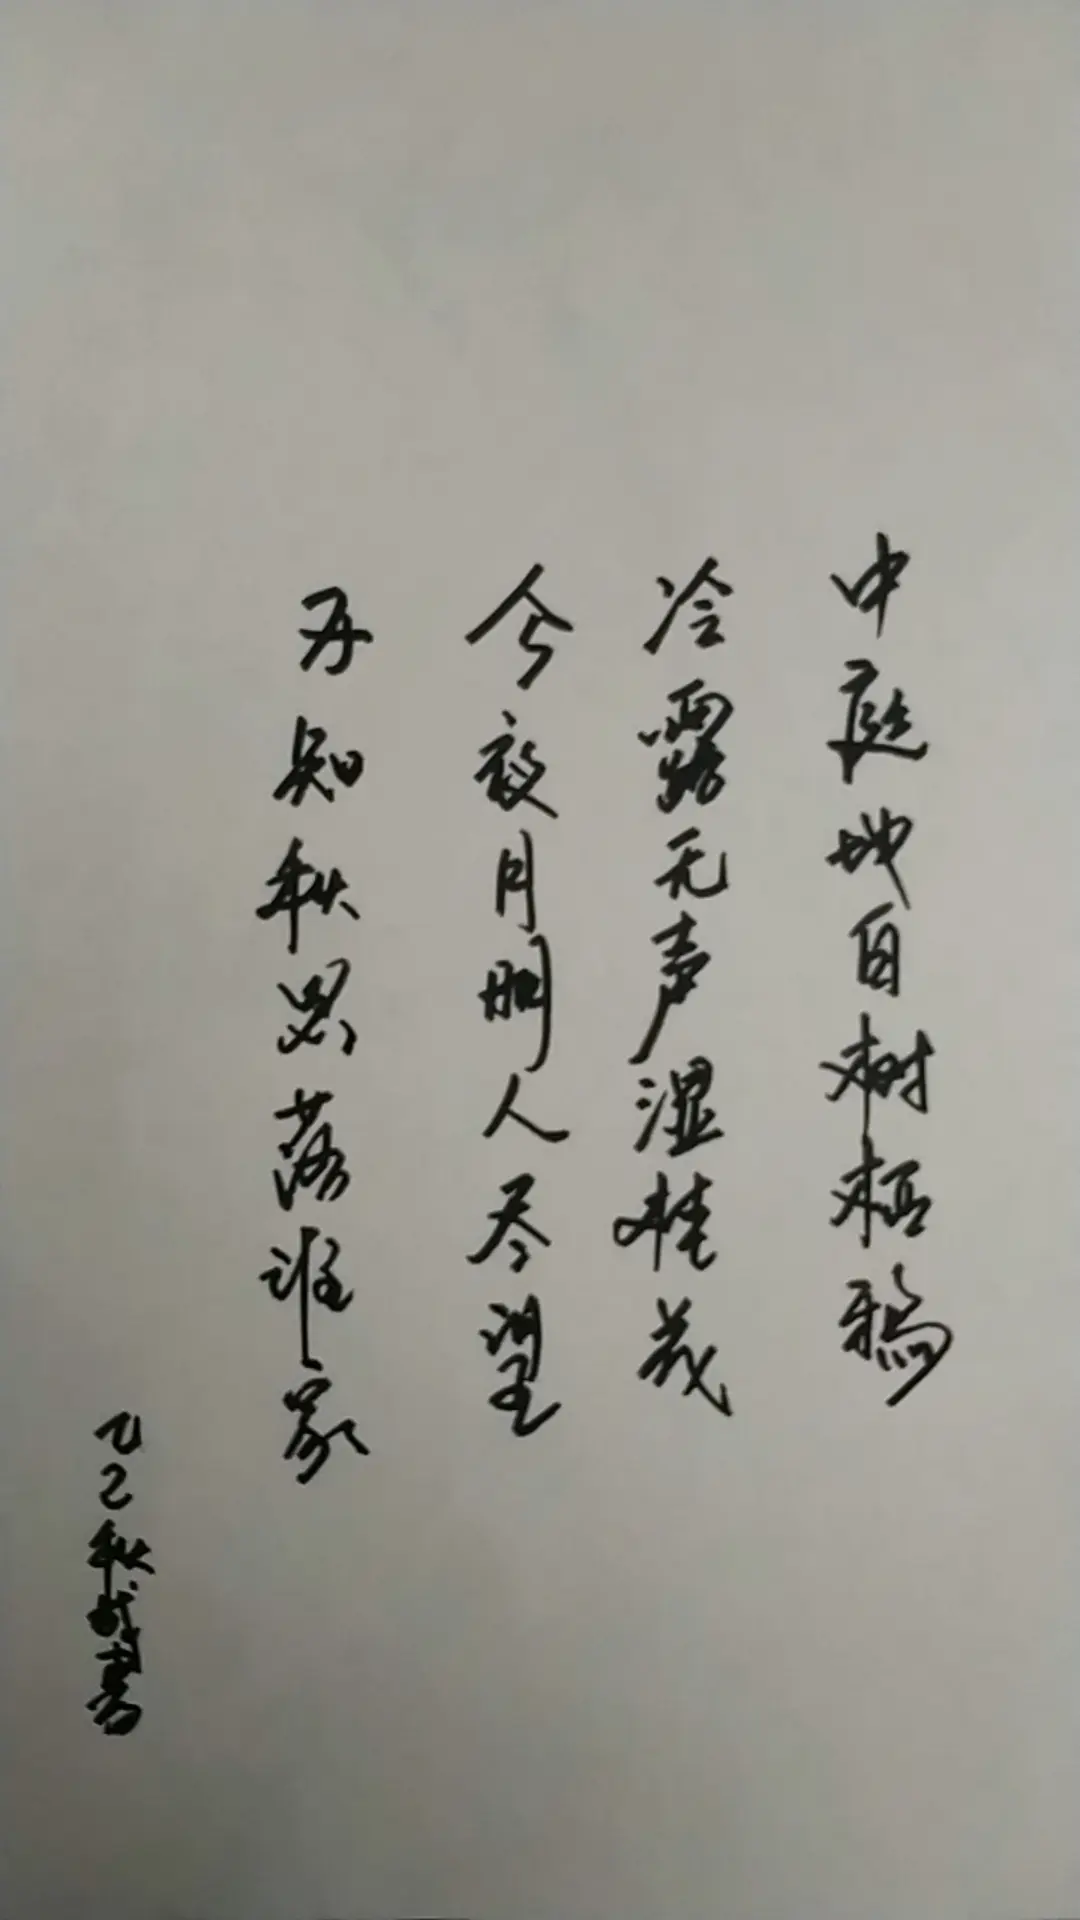 中庭地白树栖鸦
冷露无声湿桂花
今夜月明人尽望
不知秋思落谁家
乙巳秋书